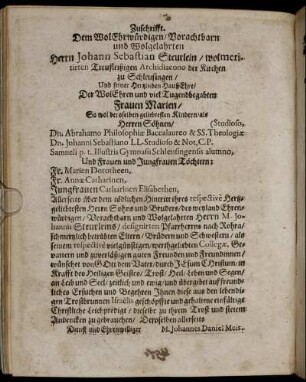 Zuschrifft.
Dem WolEhrwürdigen / Vorachtbarn
und Wolgelahrten
Herrn Johann Sebastian Steurlein / wolmeri-
tirten Treufleißigen Archidiacono der Kirchen
zu Schleusingen /
Und seiner Hertzlieben Hauß-Ehre /
Der WolEhren und viel Tugendbegabten
Frauen Marien /
So wol der selben geliebtesten Kindern als
Herren Söhnen / (Studioso,
Dn. Abrahamo Philosophiæ Baccalaureo & SS. Theologiæ
Dn. Johanni Sebastiano LL. Studioso & Not. C.P.
Samueli p. t. Illustris Gymnasii Schleusingensis alumno,
Und Frauen und Jungfrauen Töchtern:
Fr. Marien Dorotheen,
Fr. Annæ Catharinen,
Jungfrauen Catharinen Elisabethen,
Allerseits über dem tödlichen Hintritt ihres respectivè Hertz-
geliebtesten Herrn Sohns und Bruders / des weyland Ehren-
würdigen / Vorachtbarn und Wolgelahrten Herrn M. Jo-
hannis Steurleins / designirten Pfarrherrns nach Rohra /
schmertzlich betrübten Eltern / Brüdern und Schwestern / als
seinem respectivè vielgünstigen / werthgeliebten Collegæ, Ge-
vattern und zuverläßigen guten Freunden und Freundinnen /
wünschet von Gott dem Vater durch JEsum Christum in
Krafft des Heiligen Geistes / Trost / Heil / Leben und Segen /
an Leib und Seel / zeitlich und ewig / und übergibt auf freund-
liches Ersuchen und Begehren Ihnen diese aus den lebendi-
gen Trostbrunnen Israelis geschöpffte und gehaltene einfältige
Christliche Leichpredigt / dieselbe zu ihrem Trost und stetem
Andencken zu gebrauchen / Deroselben allerseits
Dienst und Ehrenwilliger M. Johannes Daniel